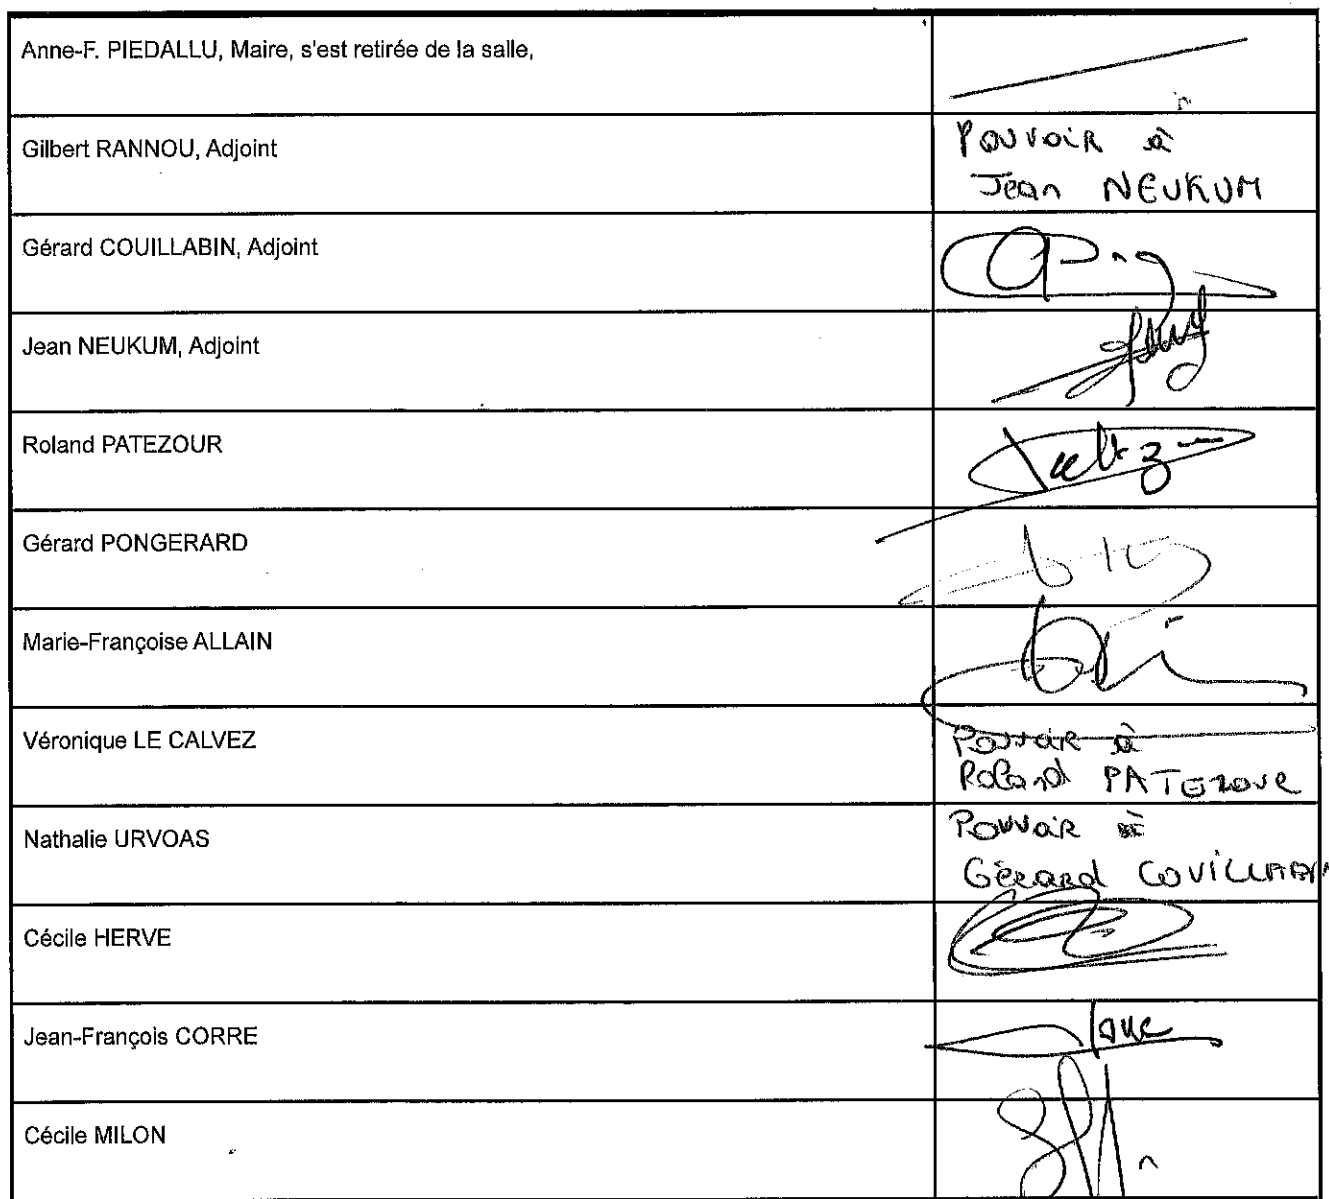 Anne-F. PIEDALLU, Maire, s'est retirée de la salle,
Gilbert RANNOU, Adjoint
Pouvoir à
Jean NEUKUM
Gérard COUILLABIN, Adjoint
Jean NEUKUM, Adjoint
Roland PATEZOUR
Gérard PONGERARD
Marie-Françoise ALLAIN
Véronique LE CALVEZ
Pouvoir à
Roland PATEZOUR
Nathalie URVOAS
Pouvoir à
Gérard COUILLABIN
Cécile HERVE
Jean-François CORRE
Cécile MILON